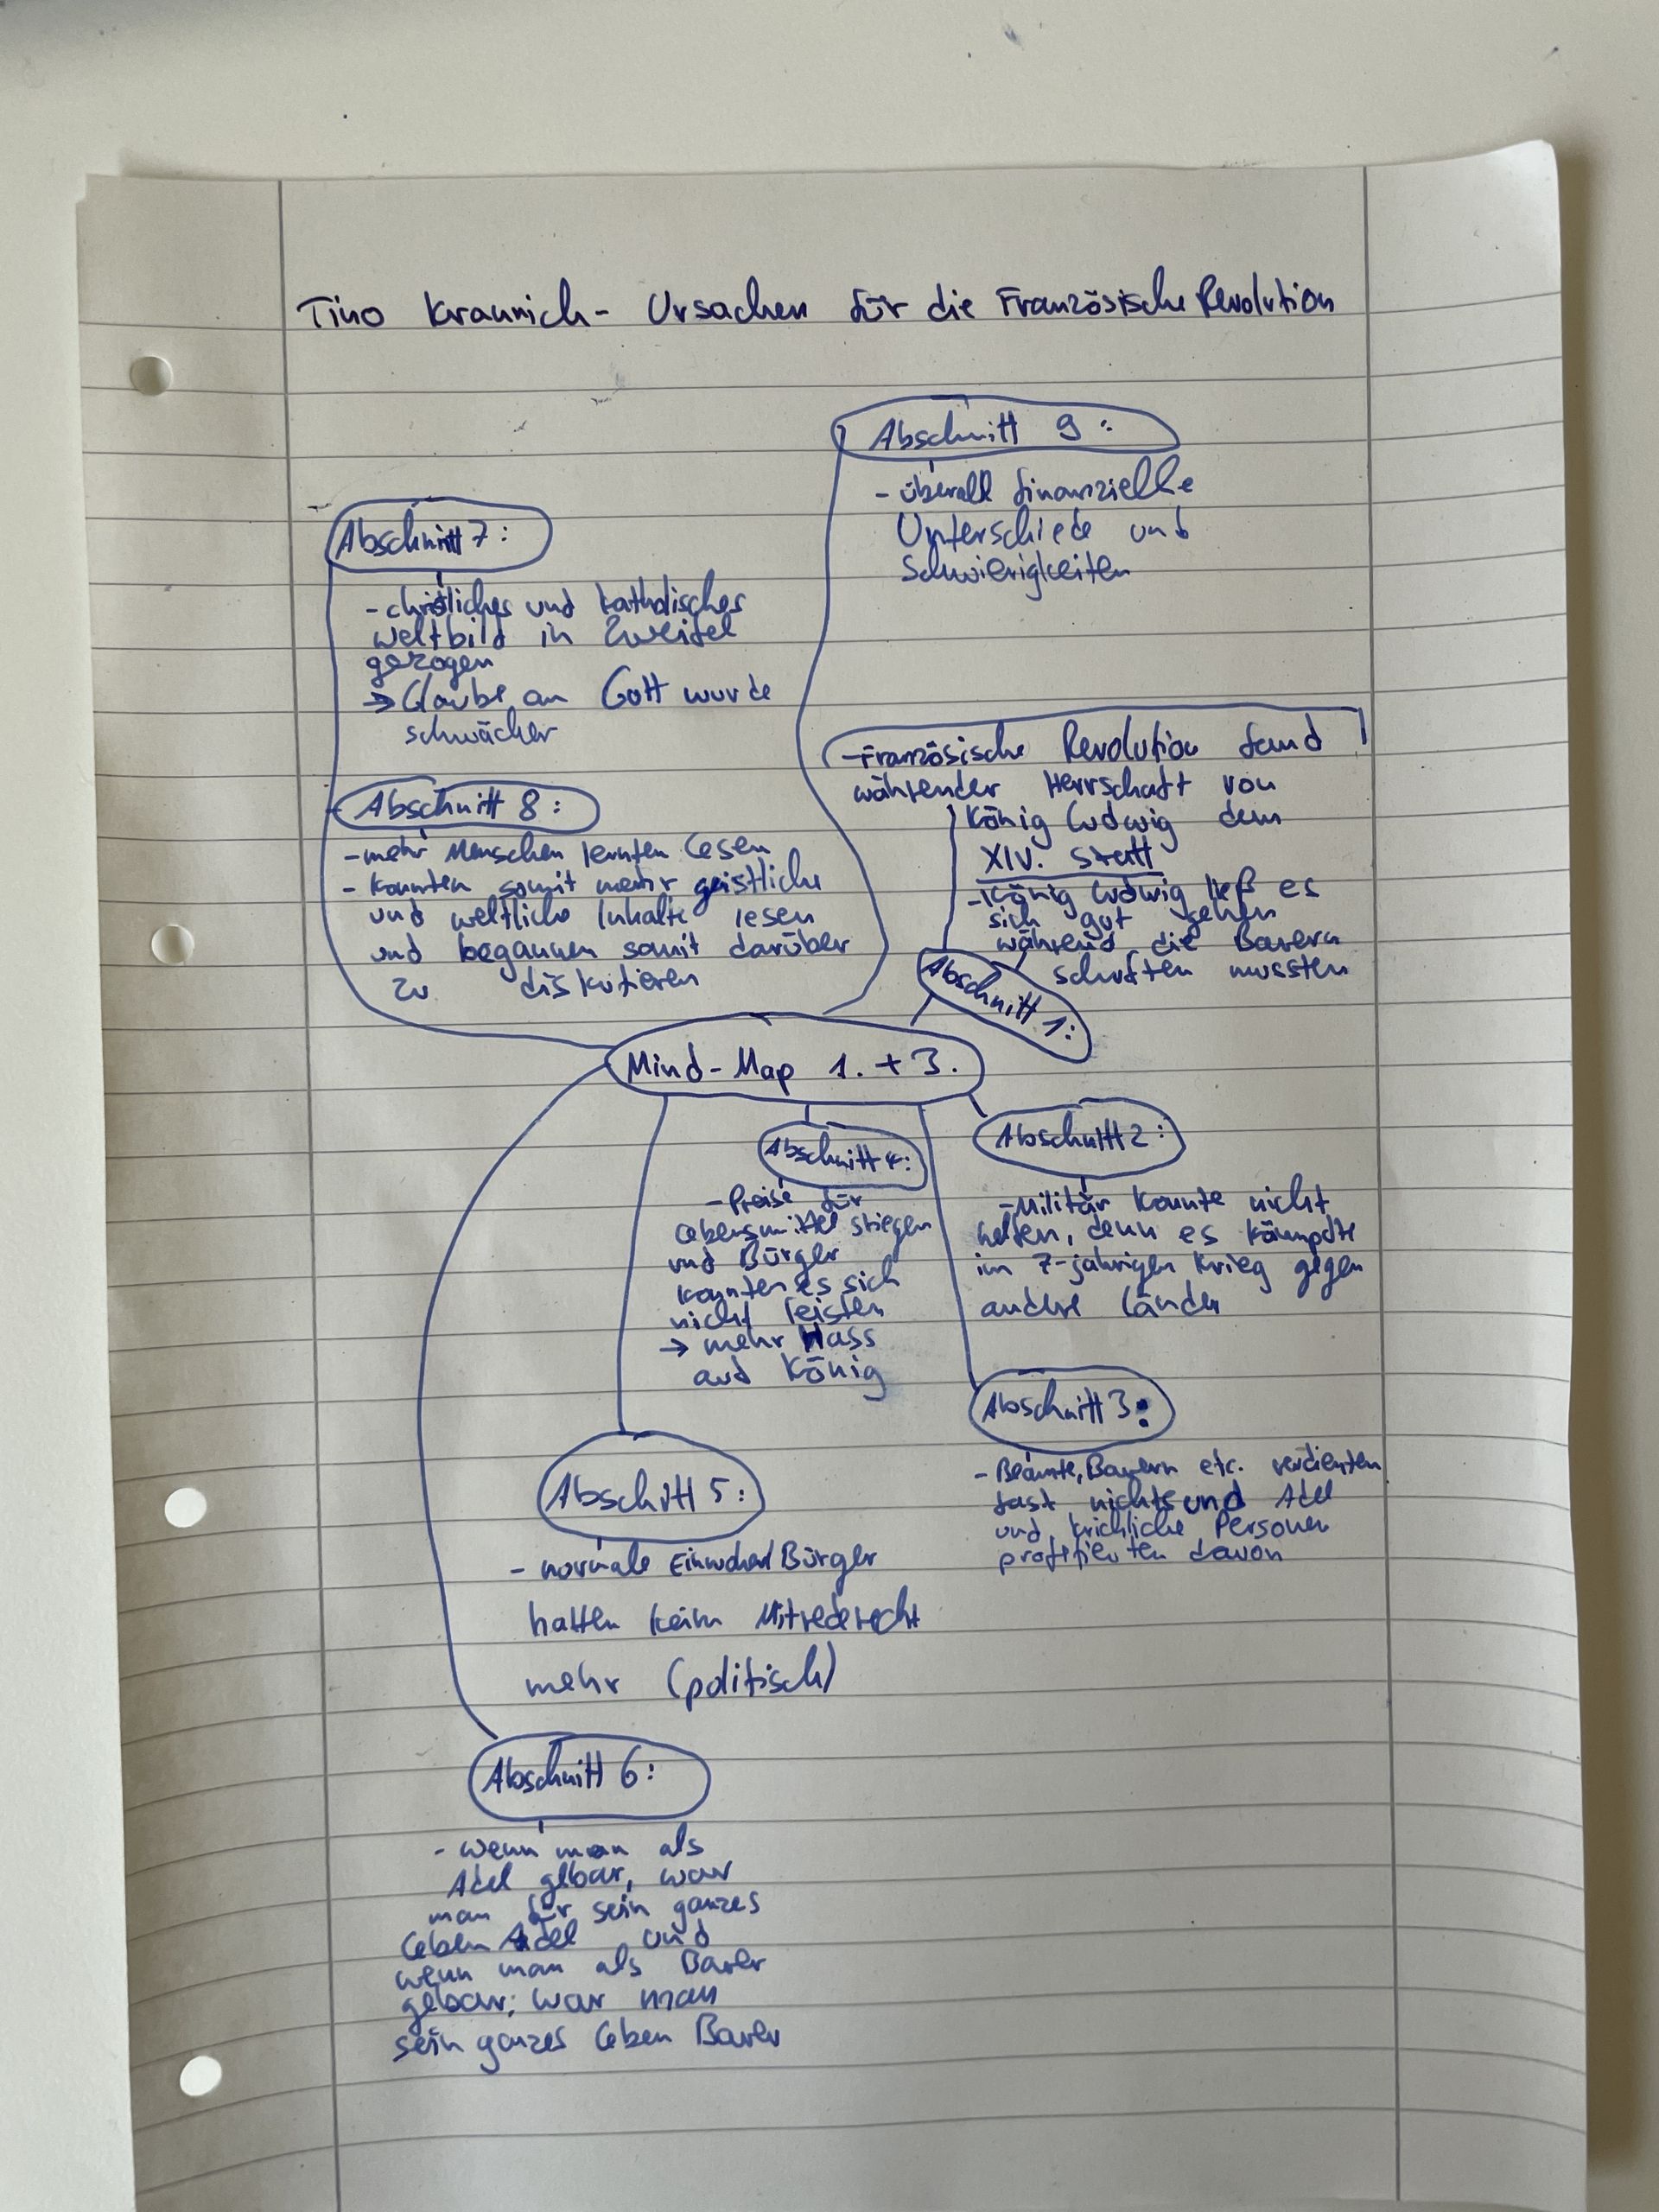 Tino Kraunich - Ursachen für die Französische Revolution
Abschnitt 9:
- überall finanzielle
Unterschiede und
Schwierigkeiten
Abschnitt 7:
- christliches und katholisches
Weltbild in Zweifel
gezogen
→ Glaube an Gott wurde
schwächer
Abschnitt 8:
- mehr Menschen lernten Lesen
- konnten somit mehr geistliche
und weltliche Inhalte lesen
und begannen somit darüber
zu diskutieren
- Französische Revolution fand
während der Herrschaft von
König Ludwig dem
XIV. statt
- König Ludwig ließ es
sich gut gehen
während die Bauern
schuften mussten
Abschnitt 1:
Mind-Map 1. + 3.
Abschnitt 2:
- Militär konnte nicht
helfen, denn es kämpfte
im 7-jährigen Krieg gegen
andere Länder
Abschnitt 4:
- Preise für
Lebensmittel stiegen
und Bürger
konnten es sich
nicht leisten
→ mehr Hass
auf König
Abschnitt 3:
- Beamte, Bauern etc. verdienten
fast nichts und Adel
und krichliche Personen
profitierten davon
Abschitt 5:
- normale Einwohner/Bürger
hatten kein Mitrederecht
mehr (politisch)
Abschnitt 6:
- wenn man als
Adel gebar, war
man für sein ganzes
Leben Adel und
wenn man als Bauer
gebar, war man
sein ganzes Leben Bauer